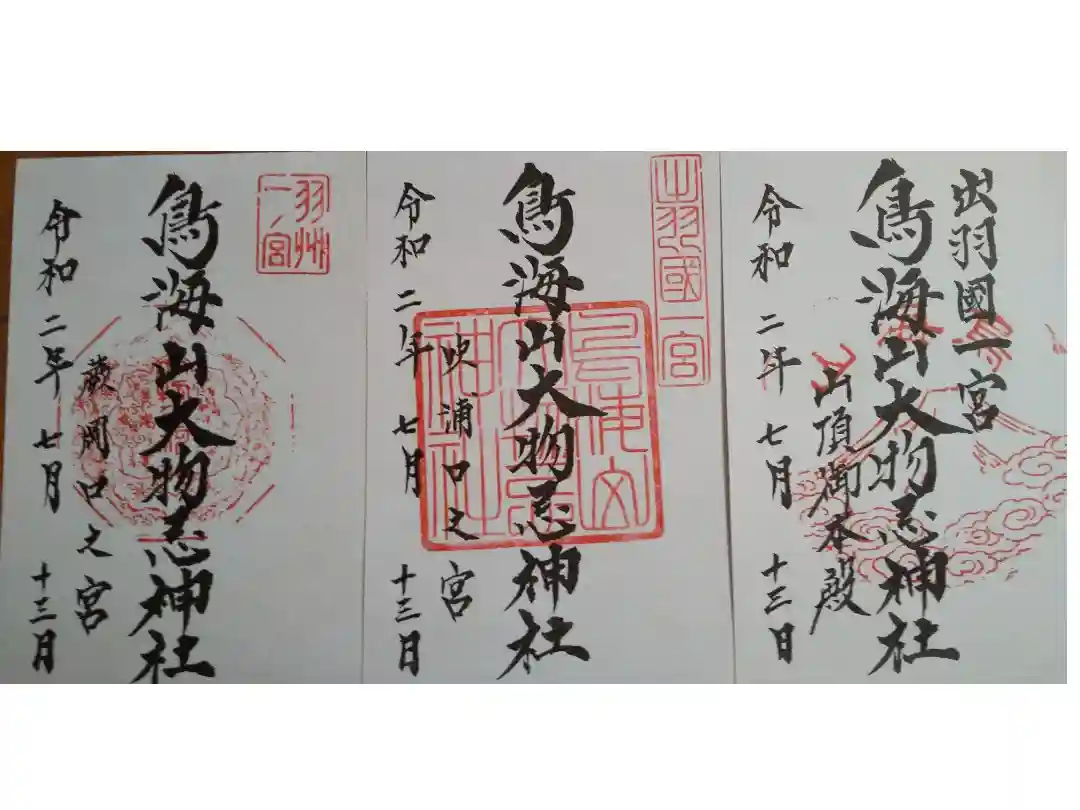 出羽國一宮
鳥海山大物忌神社
山頂御本殿
令和二年七月十三日
出羽國一宮
鳥海山大物忌神社
鳥海山
大物忌
神社
吹浦口之宮
令和二年七月十三日
羽州
一ノ宮
鳥海山大物忌神社
蕨岡口之宮
令和二年七月十三日